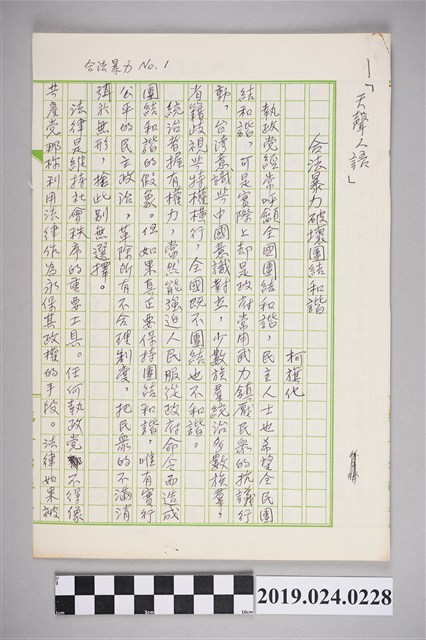 合法暴力 No. 1
一「天聲人語」
合法暴力破壞團結和諧
柯旗化
執政党經常呼籲全國團結和諧，民主人士也希望全民團
結和諧，可是實際上却是政府常用武力鎮壓民衆的抗議行
動，台湾意識与中國意識對立，少數族羣統治多數族羣，
省籍歧視与特權橫行，全國既不團結也不和諧。
統治者握有權力，當然能強迫人民服從政府命令而造成
團結和諧的假象。但如果真正要保持團結和諧，唯有實行
公平的民主政治，革除所有不合理制度，把民衆的不滿消
弭於無形，捨此別無選擇。
法律是維持社會秩序的重要工具。任何執政党不得像
共產党那樣利用法律作為永保其政權的手段。法律如果被
1cm
5cm
10cm
2019.024.0228